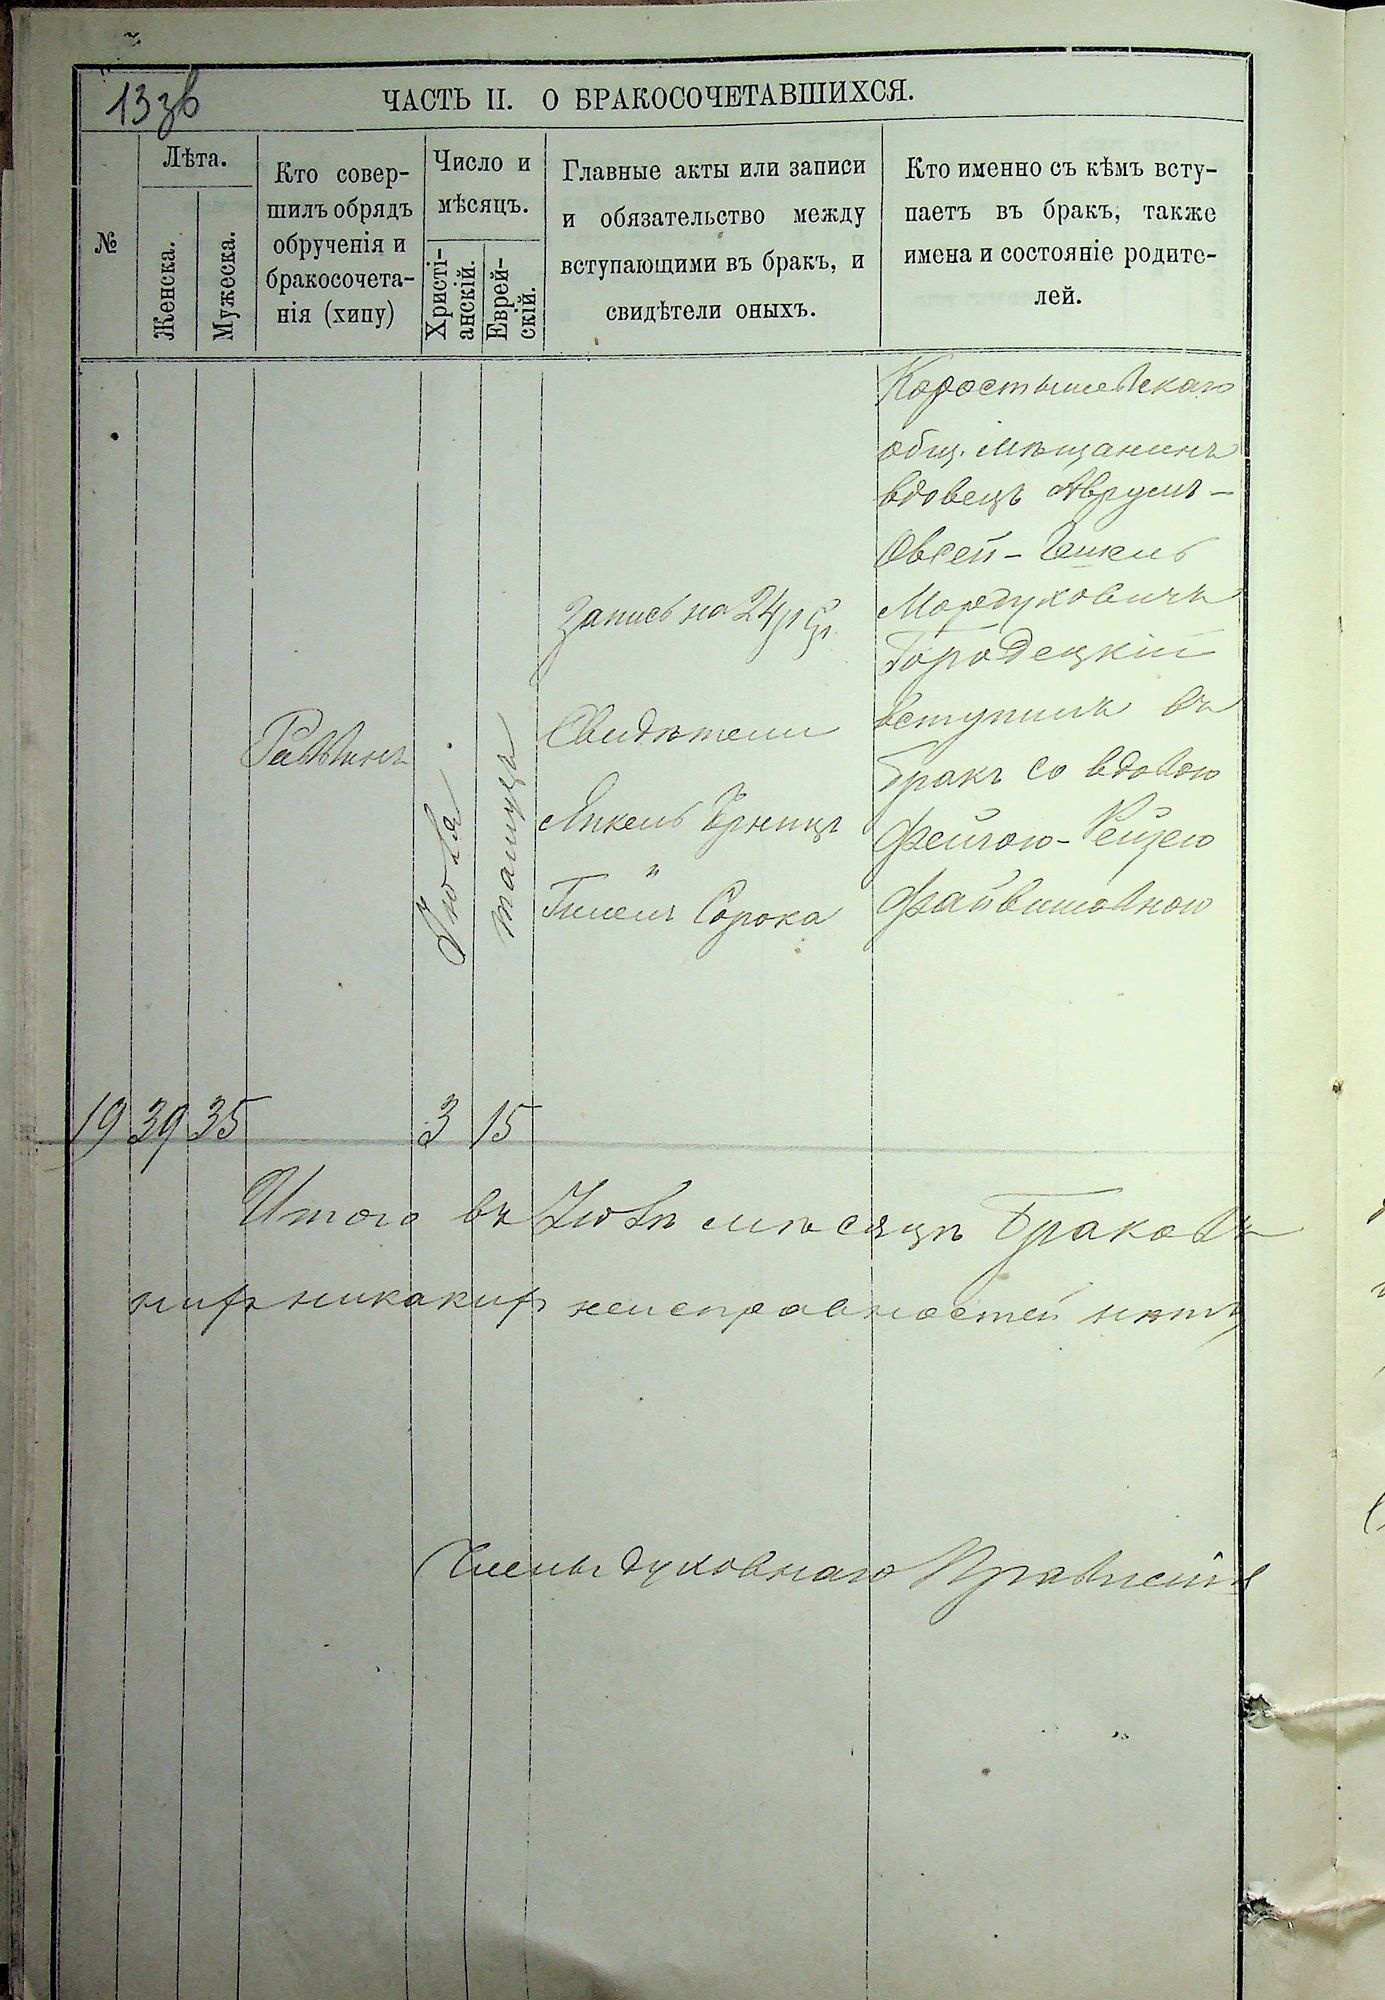 13зв
ЧАСТЬ II. О БРАКОСОЧЕТАВШИХСЯ.
№
Лѣта.
Женска.
Мужеска.
Кто совер-
шилъ обрядъ
обрученія и
бракосочета-
нія (хипу)
Число и
мѣсяцъ.
Христі-
анскій.
Еврей-
скій.
Главные акты или записи
и обязательство между
вступающими въ бракъ, и
свидѣтели оныхъ.
Кто именно съ кѣмъ всту-
паетъ въ бракъ, также
имена и состояніе родите-
лей.
19
39
35
Раввинъ
Іюля
3
тамуза
15
Запись на 24
Свидѣтели
Янкель
и
Сорока
Коростышевскаго
общ. мѣщанинъ
вдовецъ Аврумъ-
Овсей-
Мордуховичъ
Городецкій
вступилъ въ
бракъ со вдовою
Фейгою-Рейзею
Файвишовною
Итого въ Іюлѣ мѣсяцѣ браковъ
никакихъ неисправностей нѣтъ
Члены духовнаго Правленія